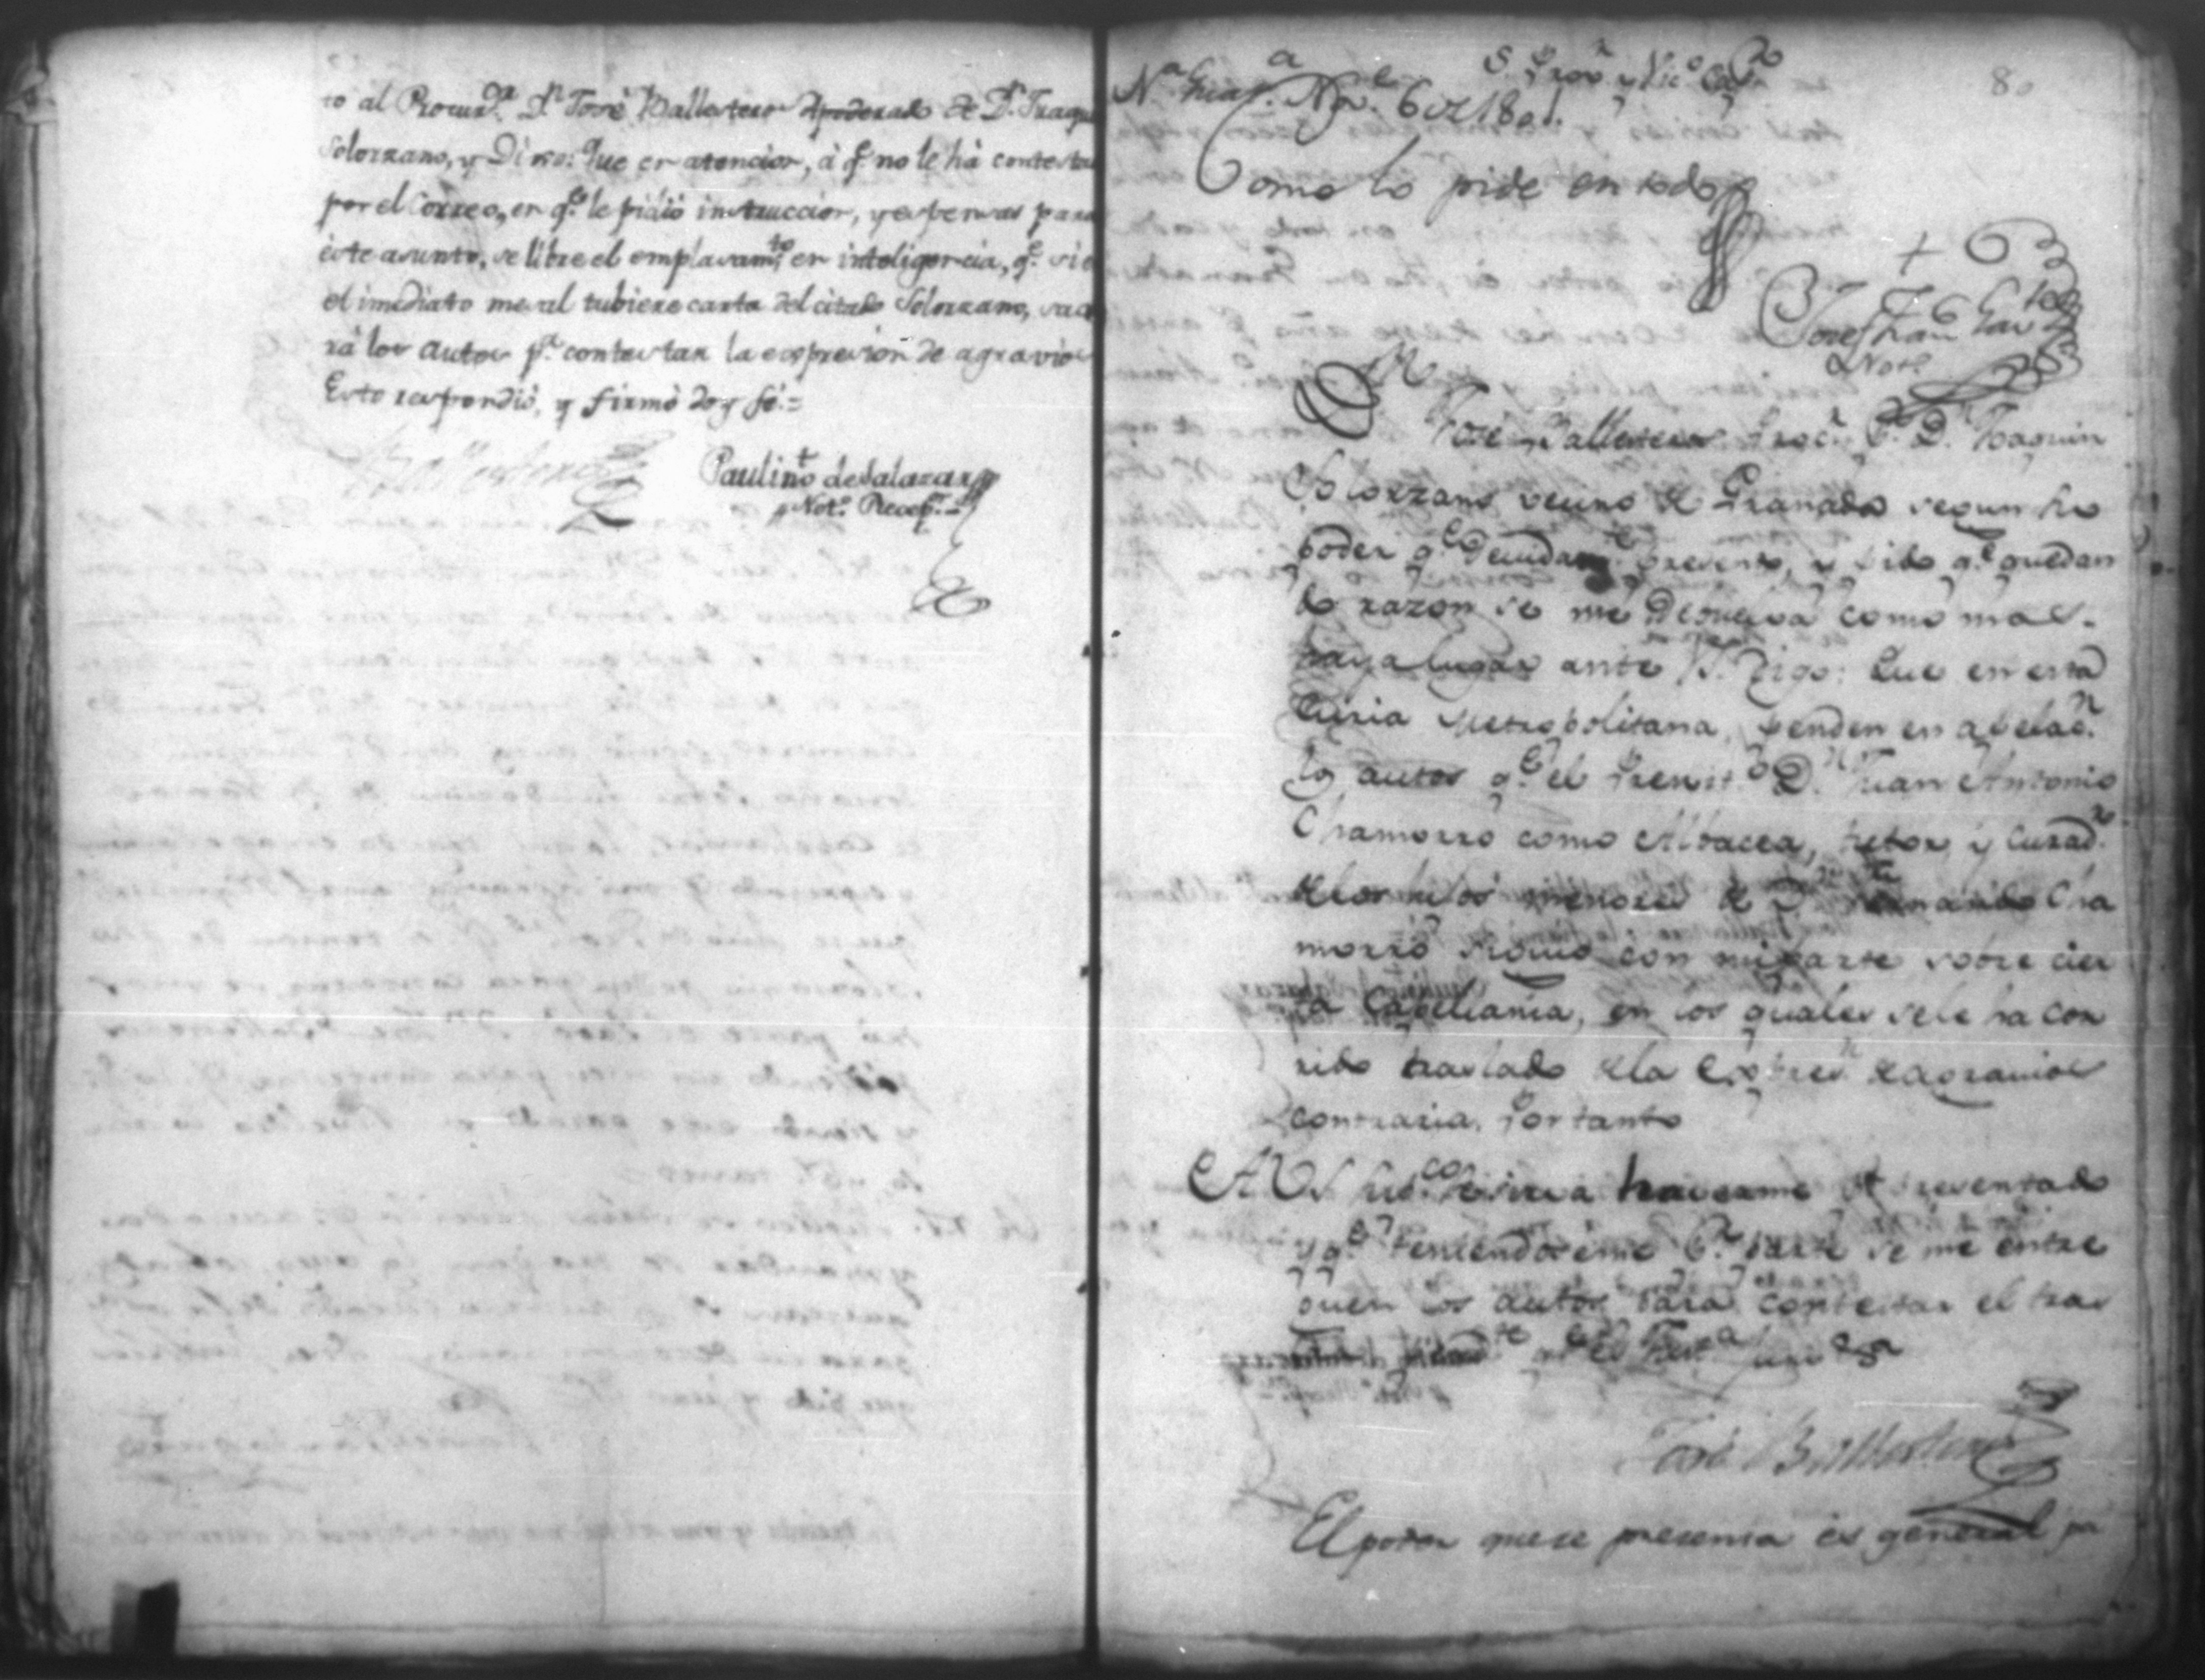 ro al Procur.or D.n José Ballestero Apoderado de D.n Joaqu
Solorzano, y Dixo: Que en atencion, á q.e no le há contesta
por el Correo, en q.e le pidió instruccion, y expensas para
éste asunto, se libre el emplasam.to en inteligencia, q.e si e
el imediato mesal tubiere carta del citado Solorzano, saca
rá los autos p.a contestar la expresion de agravios
Esto respondió, y firmó doy fé.=
Ballestero
Paulino de Salazar
Not.o Recep.r=
80
S. Prov.r y Vic.o Cap.r
N.a Guat.a Nov.e 6 de 1801.
Como lo pide en todo
José Fran.co
Not.o
José Ballesteros Proc.r P.r D. Joaquin
Solorzano vecino de Granada segun el
poder q.e devidam.te presento, y pido q.e quedan
do razon se me debuelva como mas
haya lugar ante V.S. Digo: Que en esta
Curia Metropolitana, penden en apelac.n
los autos q.e el Presvit.o D.n Juan Antonio
Chamorro como Albacea, tutor y Curad.or
de los hijos menores de D.n Fernando Cha
morro siguió con mi parte sobre cier
ta Capellania, en los quales se le ha cor
rido traslado de la Expres.n de agravios
contraria. Por tanto
A V.S. sup.co se sirva haverme por presentado
y q.e teniendoseme P.r parte se me entre
guen los autos para contestar el tras
lado pend.te q.e es Just.a juro &a
José Ballesteros
El poder que se presenta és general pa